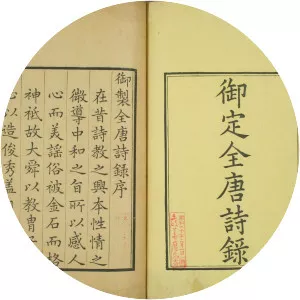 御定全唐詩錄
御製全唐詩錄序
在昔詩教之興本性情之
微導中和之旨所以感人
心而美謠俗被金石而格
神祇故大舜以教冑子
以造俊秀蓋